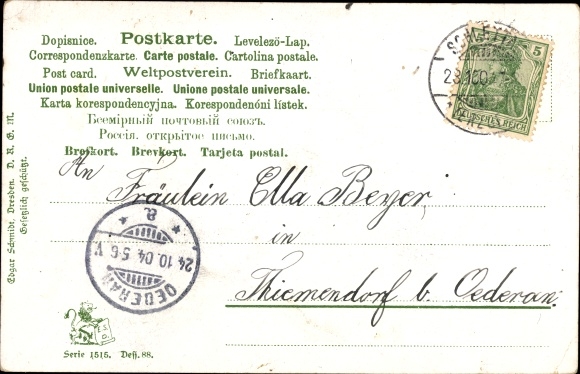 Dopisnice. Postkarte. Levelező-Lap.
Correspondenzkarte. Carte postale. Cartolina postale.
Post card. Weltpostverein. Briefkaart.
Union postale universelle. Unione postale universale.
Karta korespondencyjna. Korespondenóni lístek.
Всемірный почтовый союзъ.
Россія. открытое письмо.
Brefkort. Brevkort. Tarjeta postal.
5
DEUTSCHES REICH
An
Fräulein Ella Beyer,
in
Thiemendorf b. Oederan.
OEDERAN
24.10.04. 5-6 V
a.
Edgar Schmidt, Dresden. D. R. G. M.
Gesetzlich geschützt.
Serie 1515. Dess. 88.